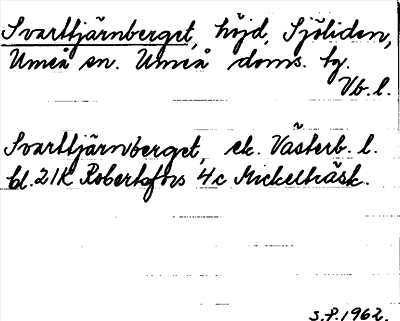 Svarttjärnberget, höjd, Sjöliden,
Umeå sn. Umeå doms. tg.
Vb. l.
Svarttjärnberget, ek. Västerb. l.
bl. 21K Robertsfors 4c Mickelträsk.
s.f. 1962.